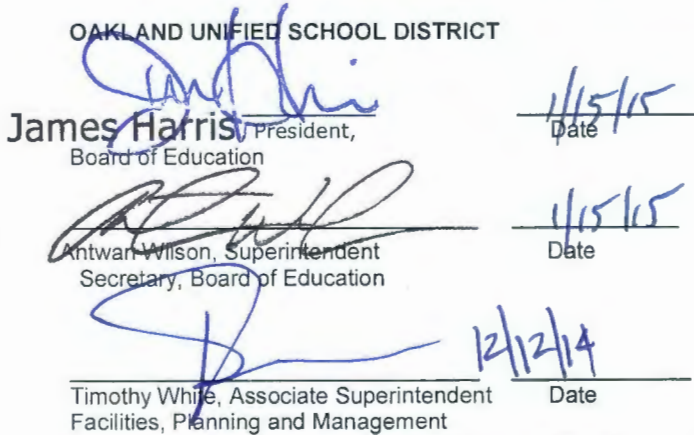 OAKLAND UNIFIED SCHOOL DISTRICT
1/15/15
James Harris, President, Date
Board of Education
1/15/15
Antwan Wilson, Superintendent Date
Secretary, Board of Education
12/12/14
Timothy White, Associate Superintendent Date
Facilities, Planning and Management